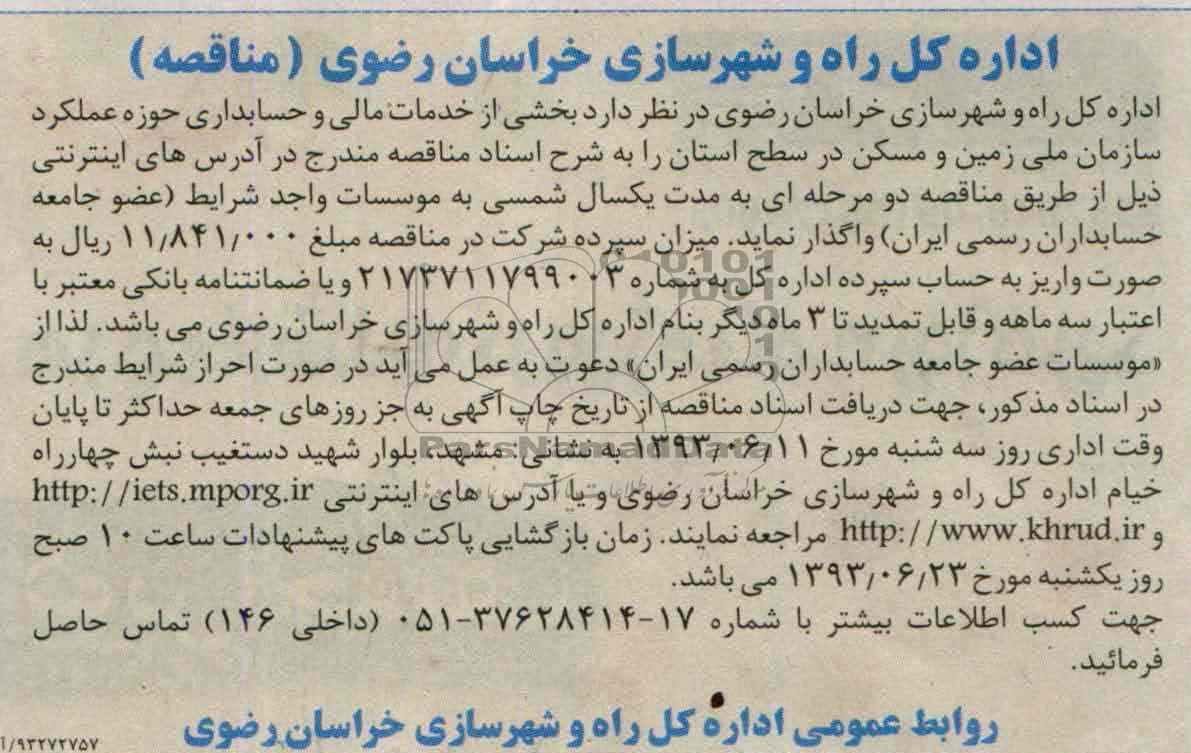 اداره کل راه و شهرسازی خراسان رضوی (مناقصه)
اداره کل راه و شهرسازی خراسان رضوی در نظر دارد بخشی از خدمات مالی و حسابداری حوزه عملکرد
سازمان ملی زمین و مسکن در سطح استان را به شرح اسناد مناقصه مندرج در آدرس های اینترنتی
ذیل از طریق مناقصه دو مرحله ای به مدت یکسال شمسی به موسسات واجد شرایط (عضو جامعه
حسابداران رسمی ایران) واگذار نماید. میزان سپرده شرکت در مناقصه مبلغ ۱۱٫۸۴۱٫۰۰۰ ریال به
صورت واریز به حساب سپرده اداره کل به شماره ۲۱۷۳۷۱۱۷۹۹۰۰۳ و یا ضمانتنامه بانکی معتبر با
اعتبار سه ماهه و قابل تمدید تا ۳ ماه دیگر بنام اداره کل راه و شهرسازی خراسان رضوی می باشد. لذا از
«موسسات عضو جامعه حسابداران رسمی ایران» دعوت به عمل می آید در صورت احراز شرایط مندرج
در اسناد مذکور، جهت دریافت اسناد مناقصه از تاریخ چاپ آگهی به جز روزهای جمعه حداکثر تا پایان
وقت اداری روز سه شنبه مورخ ۱۳۹۳٫۰۶٫۱۱ به نشانی: مشهد، بلوار شهید دستغیب نبش چهارراه
خیام اداره کل راه و شهرسازی خراسان رضوی و یا آدرس های اینترنتی http://iets.mporg.ir
و http://www.khrud.ir مراجعه نمایند. زمان بازگشایی پاکت های پیشنهادات ساعت ۱۰ صبح
روز یکشنبه مورخ ۱۳۹۳٫۰۶٫۲۳ می باشد.
جهت کسب اطلاعات بیشتر با شماره ۱۷-۳۷۶۲۸۴۱۴-۰۵۱ (داخلی ۱۴۶) تماس حاصل
فرمائید.
روابط عمومی اداره کل راه و شهرسازی خراسان رضوی
۹۳۲۷۲۷۵۷/آ
ParsNamadData